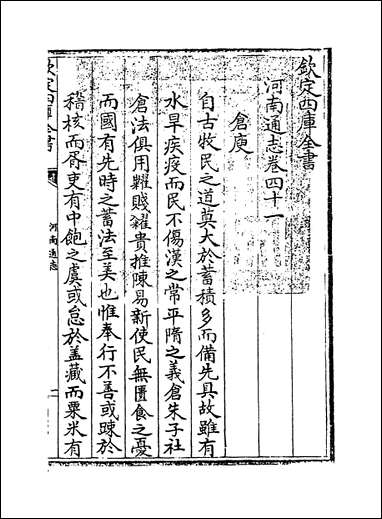 欽定四庫全書
河南通志卷四十一
倉庾
自古牧民之道莫大於蓄積多而備先具故雖有
水旱疾疫而民不傷漢之常平隋之義倉朱子社
倉法俱用糶賤糴貴推陳易新使民無匱食之憂
而國有先時之蓄法至美也惟奉行不善或踈於
稽核而胥吏有中飽之虞或怠於盖藏而粟米有
欽定四庫全書
河南通志